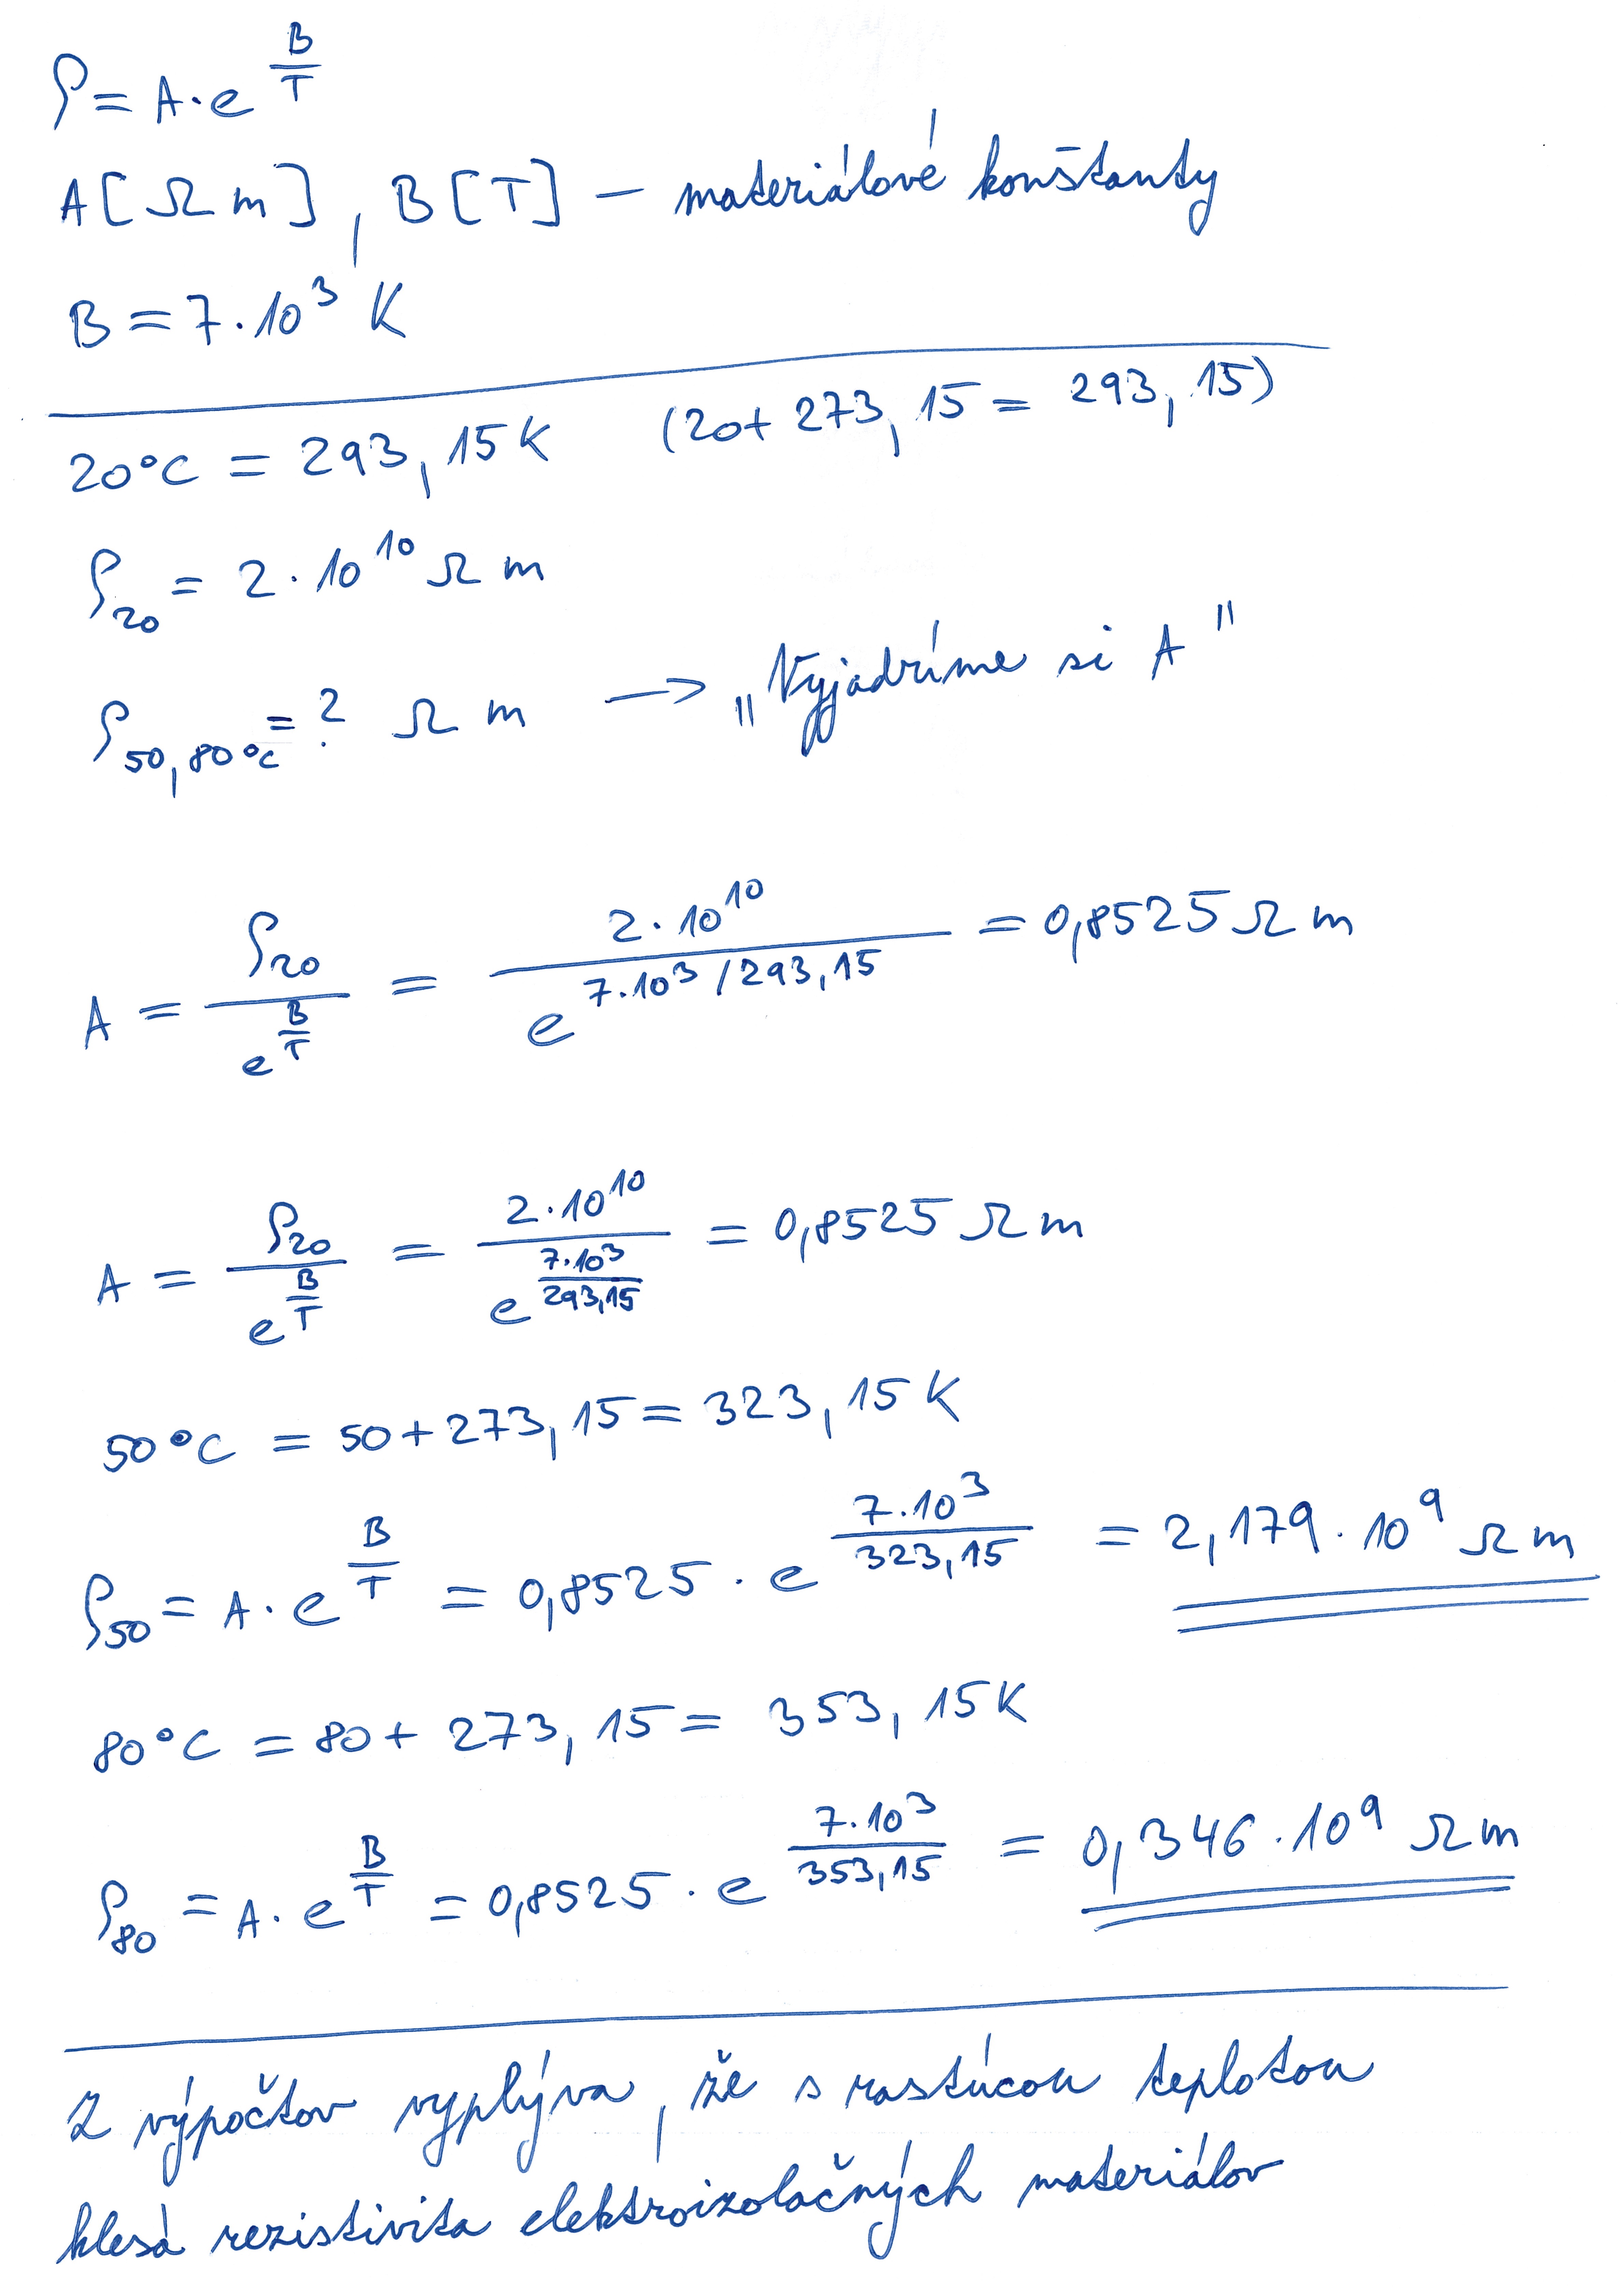 ρ = A · e^(B/T)
A [Ω m], B [T] – materiálové konštanty
B = 7 · 10³ K
20°C = 293,15 K (20 + 273,15 = 293,15)
ρ₂₀ = 2 · 10¹⁰ Ω m
ρ₅₀,₈₀°C = ? Ω m → „Vyjadríme si A"
A = ρ₂₀ / e^(B/T) = 2 · 10¹⁰ / e^(7 · 10³ / 293,15) = 0,8525 Ω m
A = ρ₂₀ / e^(B/T) = 2 · 10¹⁰ / e^(7 · 10³ / 293,15) = 0,8525 Ω m
50°C = 50 + 273,15 = 323,15 K
ρ₅₀ = A · e^(B/T) = 0,8525 · e^(7 · 10³ / 323,15) = 2,179 · 10⁹ Ω m
80°C = 80 + 273,15 = 353,15 K
ρ₈₀ = A · e^(B/T) = 0,8525 · e^(7 · 10³ / 353,15) = 0,346 · 10⁹ Ω m
Z výpočtov vyplýva, že s rastúcou teplotou
klesá rezistivita elektroizolačných materiálov